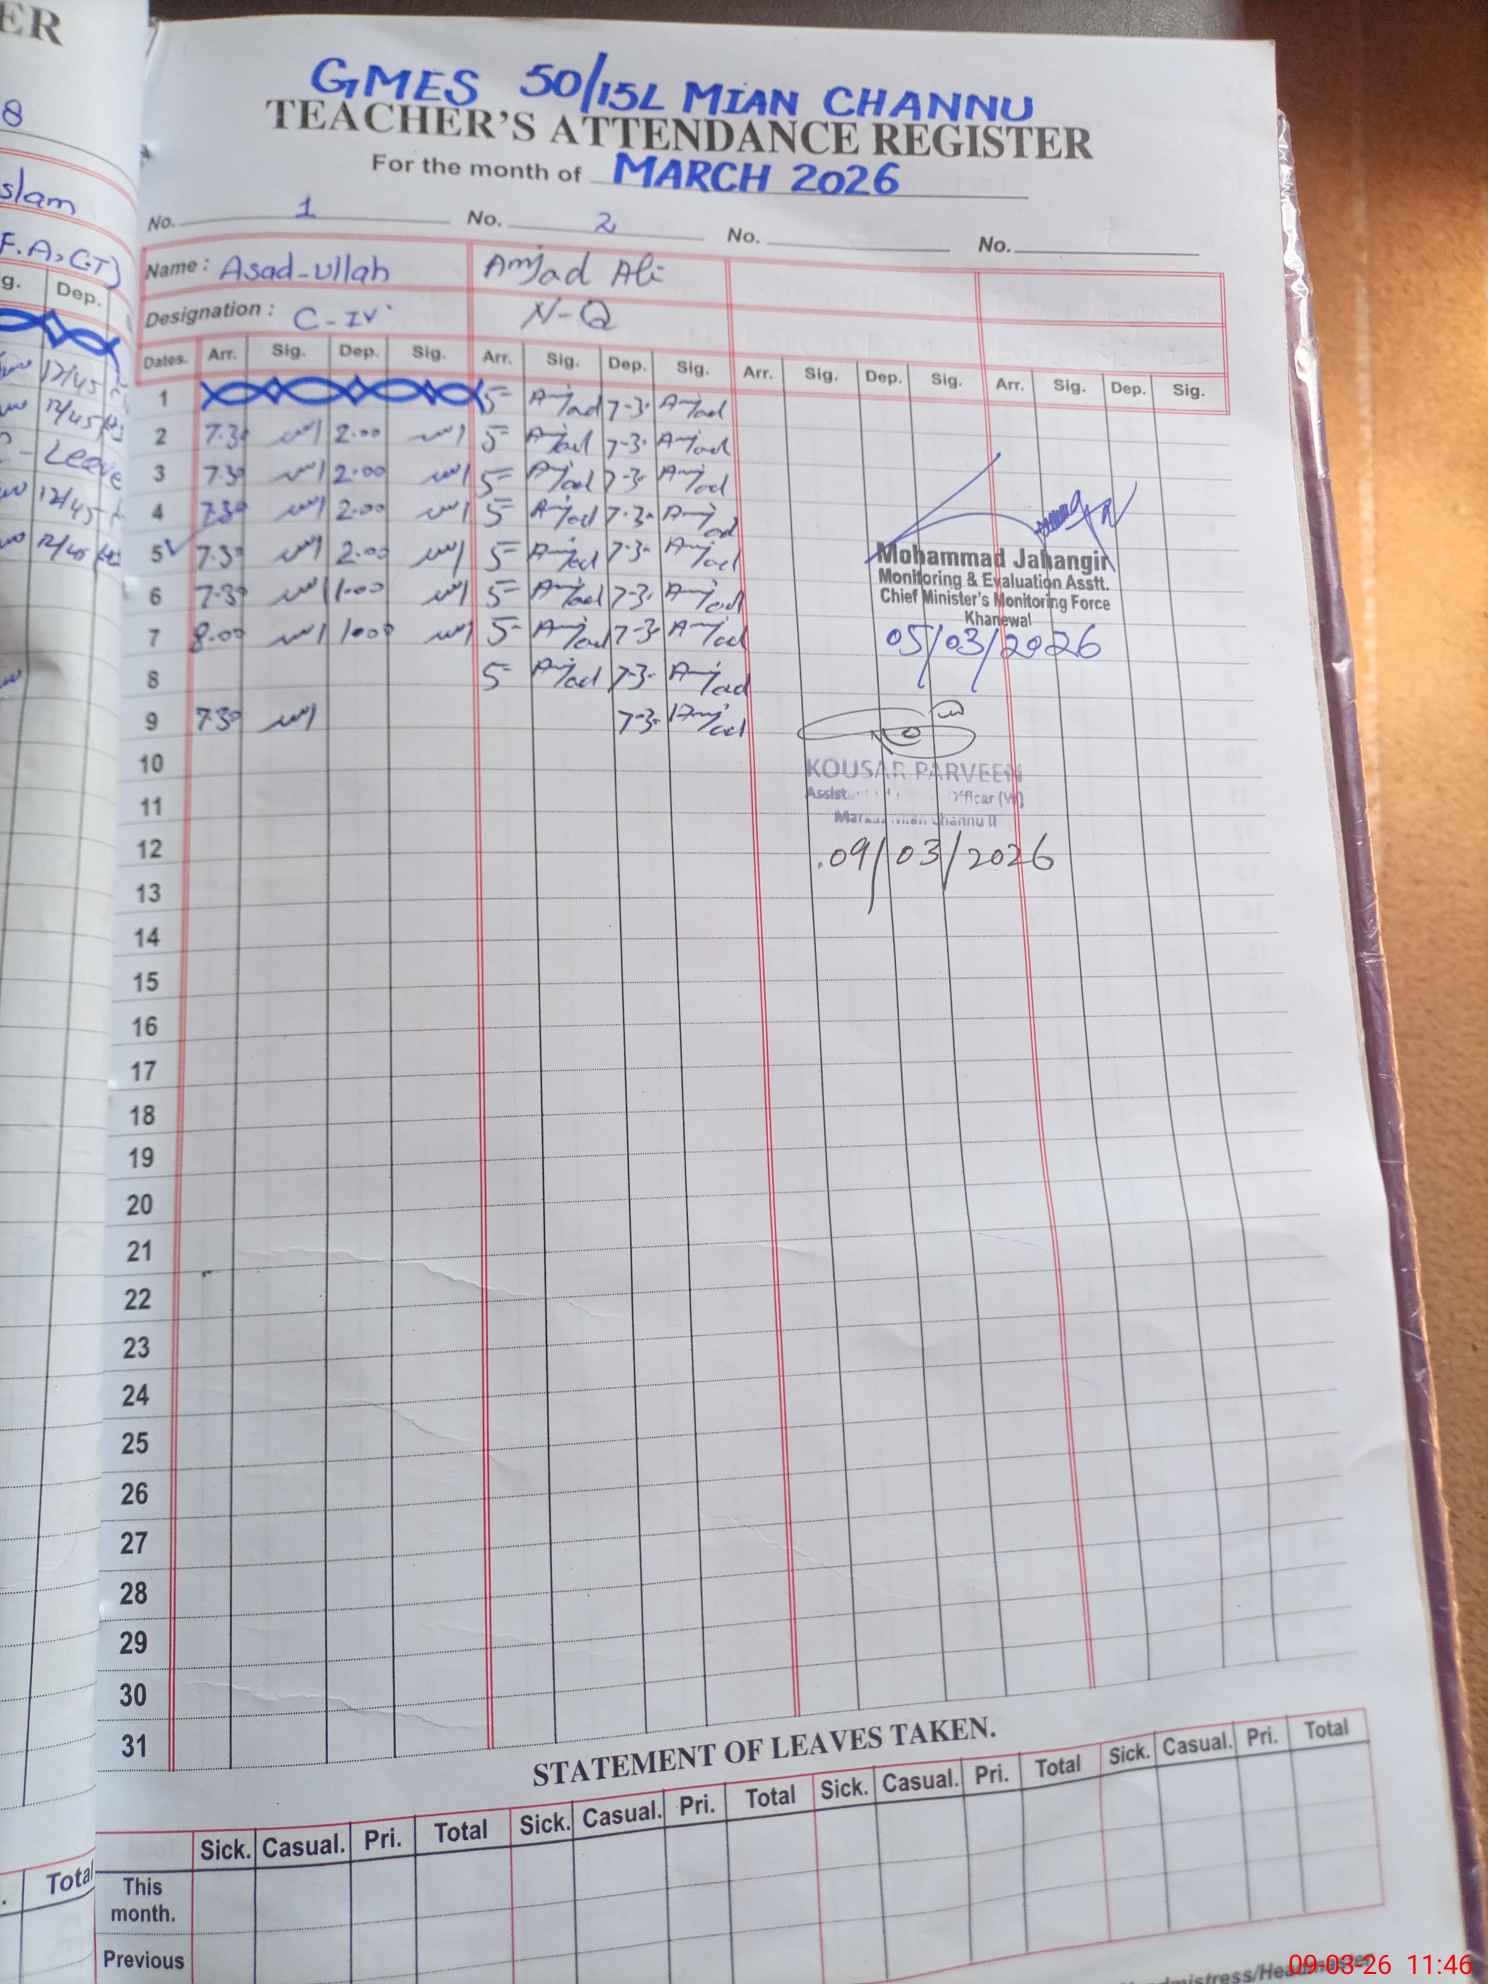 ER
8
slam
F.A, C.T)
g. Dep.
12/45
12/45
C-Leave
12/45
12/45
Total
GMES 50/15L MIAN CHANNU
TEACHER'S ATTENDANCE REGISTER
For the month of MARCH 2026
No. 1 No. 2 No. No.
Name: Asad-ullah Amjad Ali
Designation: C-IV N-Q
Dates. Arr. Sig. Dep. Sig. Arr. Sig. Dep. Sig. Arr. Sig. Dep. Sig. Arr. Sig. Dep. Sig.
1 5= Amjad 7-3- Amjad
2 7.30 2.00 5= Amjad 7-3- Amjad
3 7.30 2.00 5= Amjad 7-3- Amjad
4 7.30 2.00 5= Amjad 7-3- Amjad
5 7.30 2.00 5= Amjad 7-3- Amjad
6 7.30 1.00 5= Amjad 7-3- Amjad
7 8.00 1.00 5= Amjad 7-3- Amjad
8 5= Amjad 7-3- Amjad
9 7.30 7-3- Amjad
10
11
12
13
14
15
16
17
18
19
20
21
22
23
24
25
26
27
28
29
30
31
Mohammad Jahangir
Monitoring & Evaluation Asstt.
Chief Minister's Monitoring Force
Khanewal
05/03/2026
KOUSAR PARVEEN
Officer (W)
Channu II
09/03/2026
STATEMENT OF LEAVES TAKEN.
Sick. Casual. Pri. Total Sick. Casual. Pri. Total Sick. Casual. Pri. Total Sick. Casual. Pri. Total
This month.
Previous
09-03-26 11:46